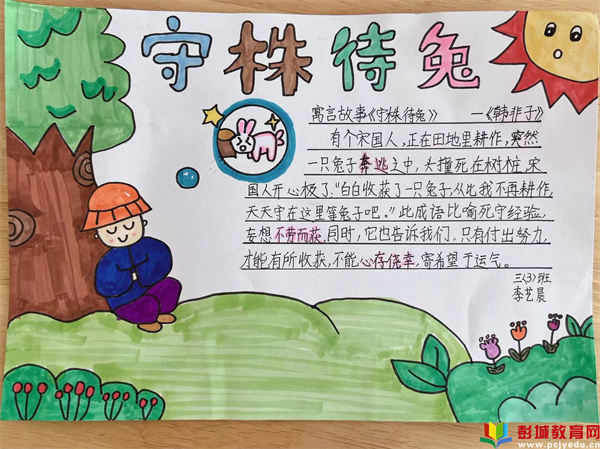 守株待兔
寓言故事《守株待兔》 —《韩非子》
有个宋国人，正在田地里耕作，突然
一只兔子奔逃之中，头撞死在树桩，宋
国人开心极了，“白白收获了一只兔子，从此我不再耕作，
天天守在这里等兔子吧。”此成语比喻死守经验，
妄想不劳而获，同时，它也告诉我们，只有付出努力，
才能有所收获，不能心存侥幸，寄希望于运气。
三(3)班
李艺晨
彭城教育网
www.pcjyedu.cn